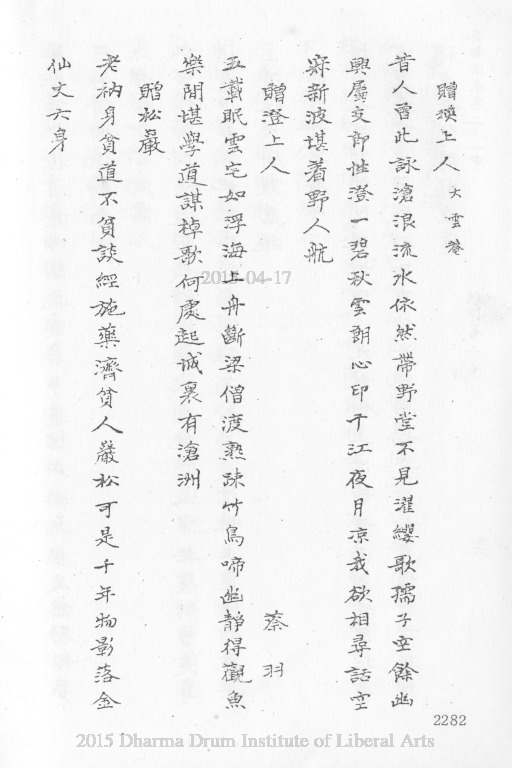 贈煥上人 大雲菴
昔人曾此詠滄浪流水依然帶野堂不見濯纓歌孺子空餘幽
興屬支郎性澄一碧秋雲朗心印千江夜月凉我欲相尋話空
寂新波堪着野人航
贈澄上人 蔡羽
五載眠雲宅如浮海上舟斷梁僧渡熟疎竹鳥啼幽靜得觀魚
樂閒堪學道謀棹歌何處起城裏有滄洲
贈松巖
老衲身貧道不貧談經施藥濟貧人巖松可是千年物影落金
仙丈六身
2015-04-17
2282
2015 Dharma Drum Institute of Liberal Arts